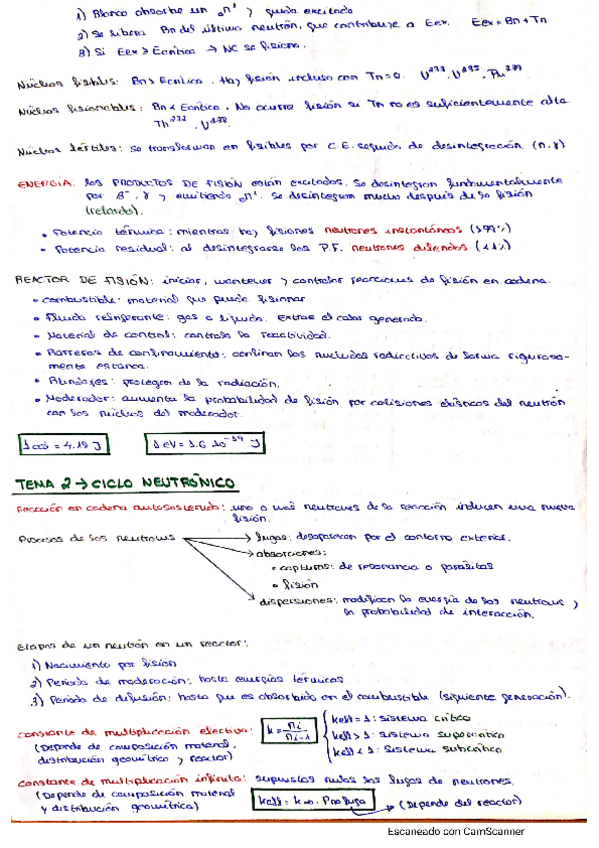 1) Blanco absorbe un ₀n¹ y queda excitado
2) Se libera Bn del último neutrón, que contribuye a Eex. Eex = Bn + Tn
3) Si Eex > Ecrítica → NC se fisiona.
Núcleos fisibles: Bn > Ecrítica. Hay fisión incluso con Tn = 0. U²³³, U²³⁵, Pu²³⁹
Núcleos fisionables: Bn < Ecrítica. No ocurre fisión si Tn no es suficientemente alta.
Th²³², U²³⁸.
Núcleos fértiles: Se transforman en fisibles por C.E. seguida de desintegración (n,γ)
ENERGÍA: los PRODUCTOS DE FISIÓN están excitados. Se desintegran fundamentalmente
por β⁻, γ y emitiendo ₀n¹. Se desintegran mucho después de la fisión
(retardo).
• Potencia térmica: mientras hay fisiones neutrones instantáneos (>99%)
• Potencia residual: al desintegrarse los P.F. neutrones diferidos (<1%)
REACTOR DE FISIÓN: iniciar, mantener y controlar reacciones de fisión en cadena.
• Combustible: material que pueda fisionar
• Fluido refrigerante: gas o líquido. Extrae el calor generado.
• Material de control: controla la reactividad.
• Barreras de confinamiento: confinan los nucleidos radiactivos de forma rigurosa-
mente estanca.
• Blindajes: protegen de la radiación.
• Moderador: aumenta la probabilidad de fisión por colisiones elásticas del neutrón
con los núcleos del moderador.
1 cal = 4.19 J 1 eV = 1.6 10⁻¹⁹ J
TEMA 2 → CICLO NEUTRÓNICO
Reacción en cadena autosostenida: uno o más neutrones de la reacción inducen una nueva
fisión.
Procesos de los neutrones → fugas: desaparecen por el contorno exterior.
→ absorciones:
• capturas: de resonancia o parásitas
• fisión
→ dispersiones: modifican la energía de los neutrones y
la probabilidad de interacción.
Etapas de un neutrón en un reactor:
1) Nacimiento por fisión
2) Período de moderación: hasta energías térmicas
3) Período de difusión: hasta que es absorbido en el combustible (siguiente generación).
constante de multiplicación efectiva: k = nᵢ/nᵢ₋₁ { keff = 1: sistema crítico
(Depende de composición material, keff > 1: sistema supercrítico
distribución geométrica y reactor) keff < 1: sistema subcrítico
constante de multiplicación infinita: supuestas nulas las fugas de neutrones.
(Depende de composición material keff = k∞ · Pnofuga → (Depende del reactor)
y distribución geométrica)
Escaneado con CamScanner